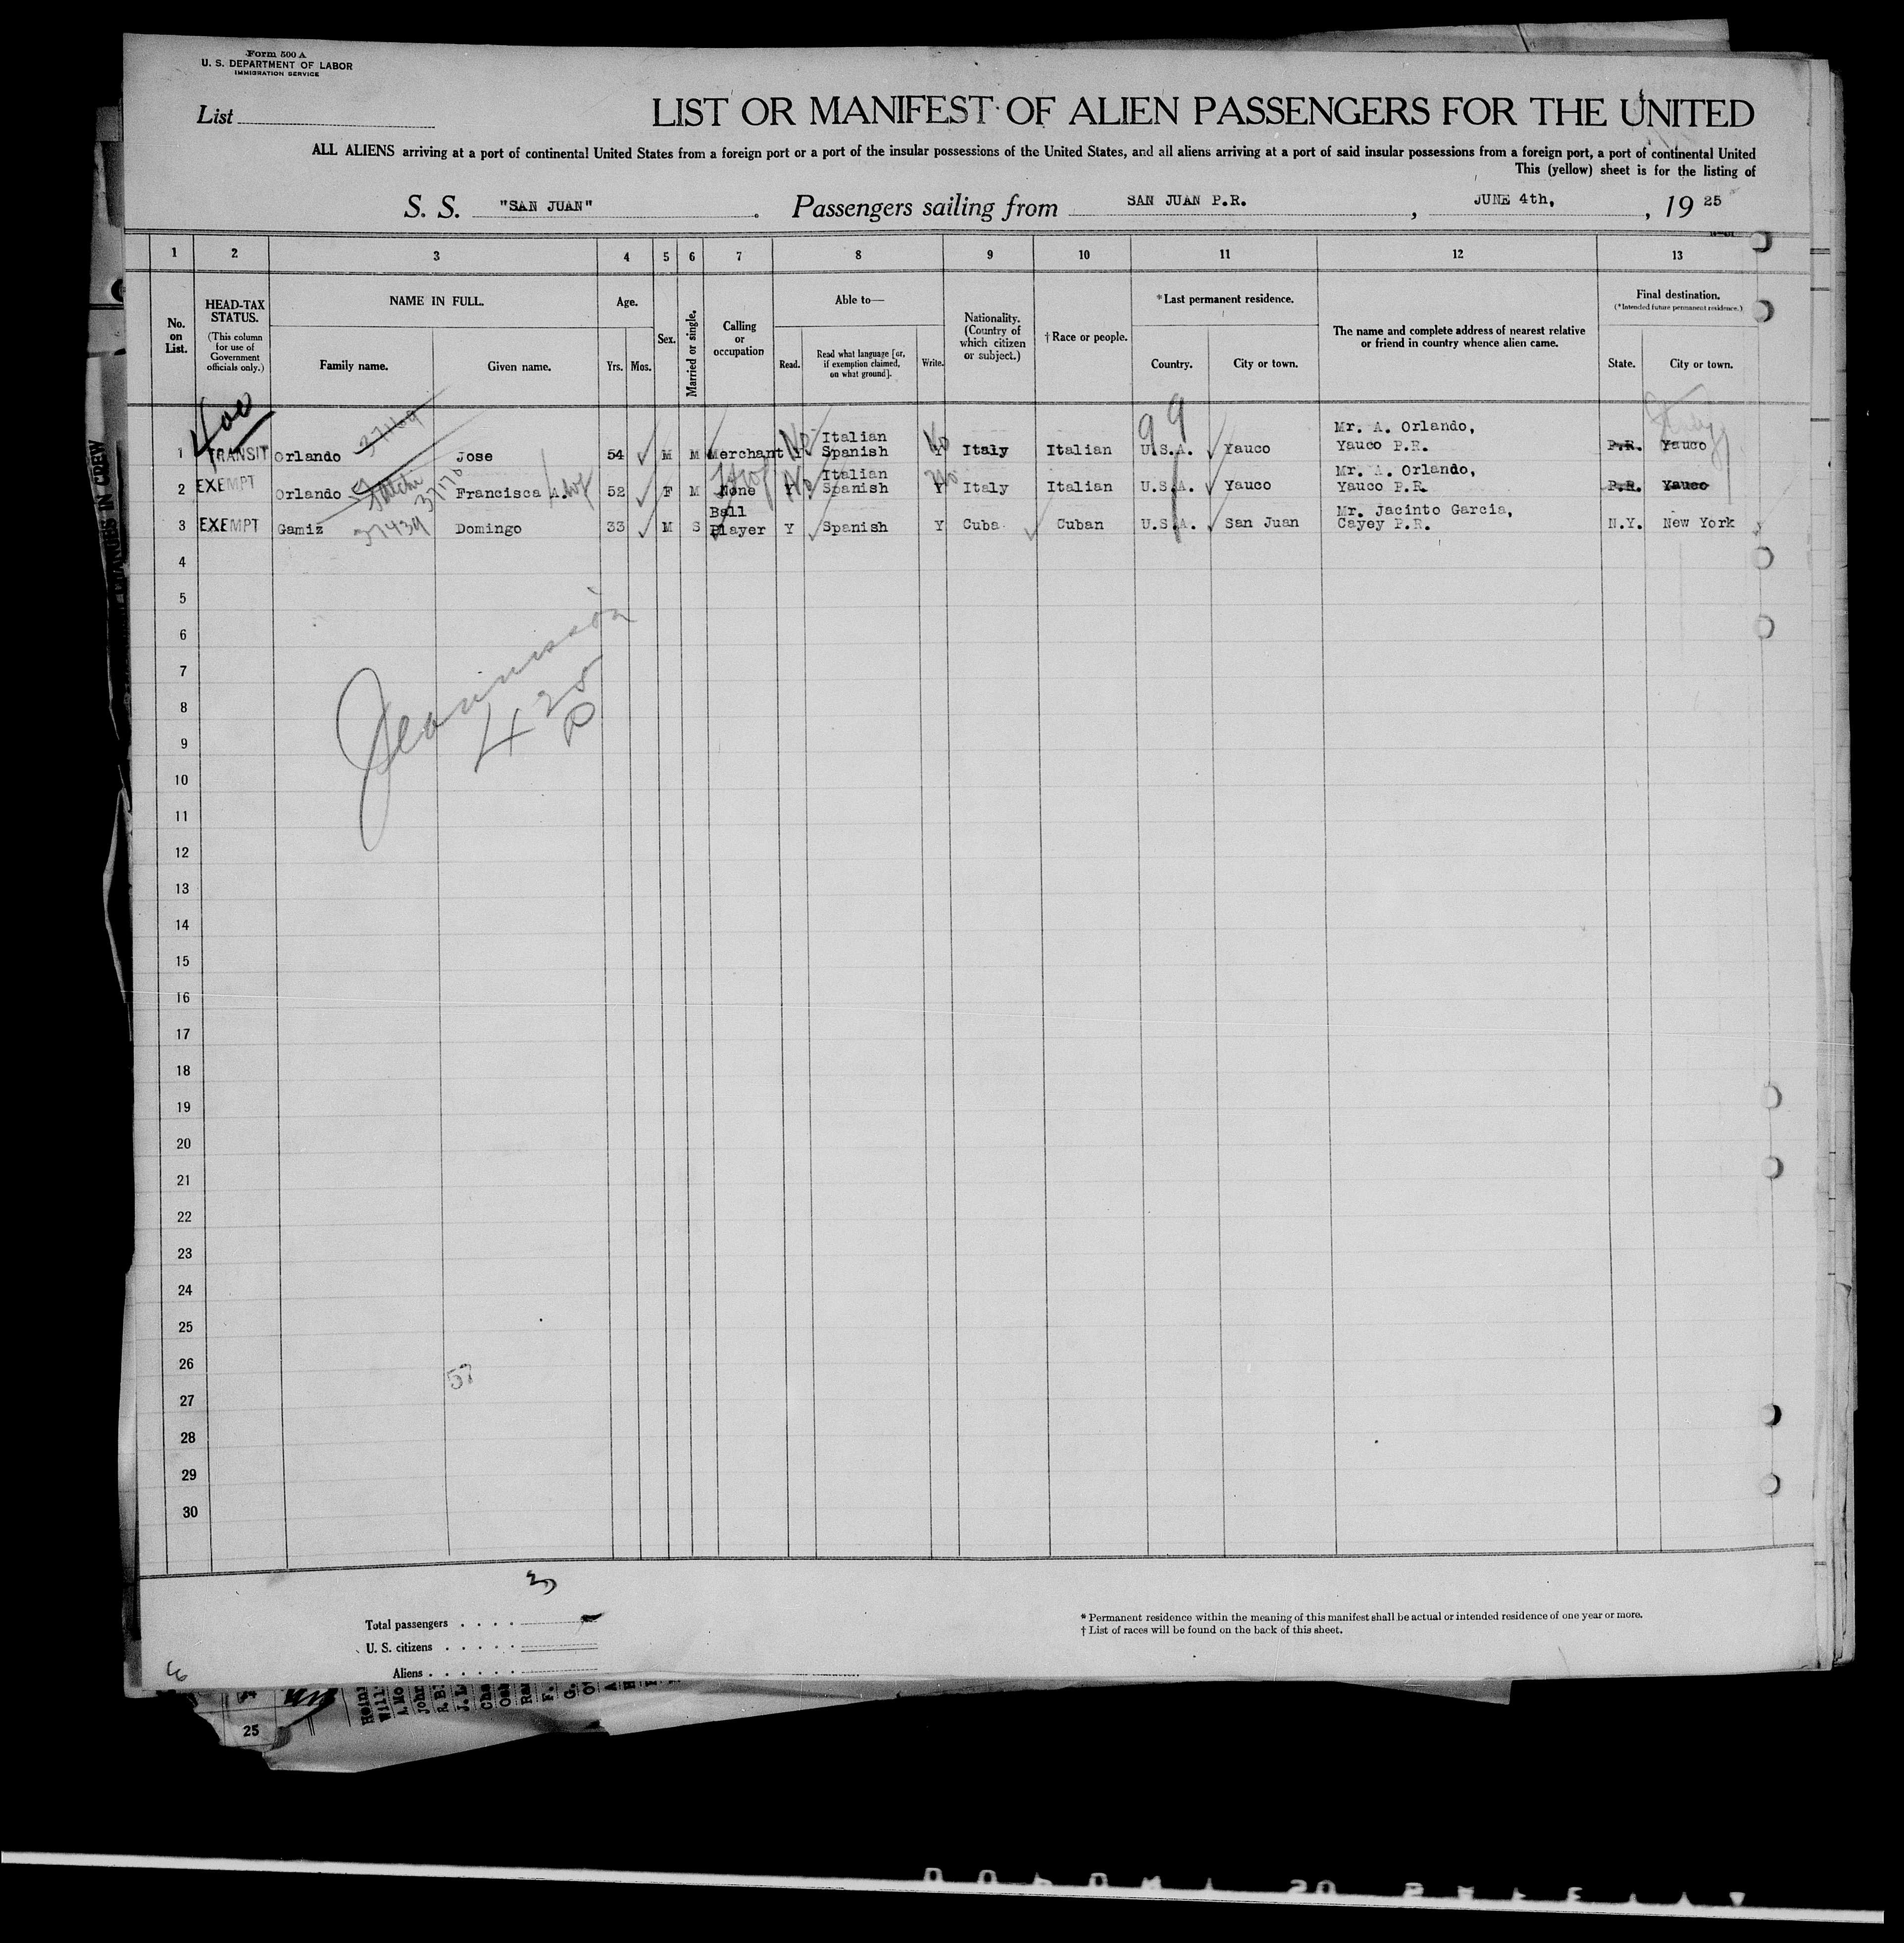 Form 500 A
U. S. DEPARTMENT OF LABOR
IMMIGRATION SERVICE
List
LIST OR MANIFEST OF ALIEN PASSENGERS FOR THE UNITED
ALL ALIENS arriving at a port of continental United States from a foreign port or a port of the insular possessions of the United States, and all aliens arriving at a port of said insular possessions from a foreign port, a port of continental United
This (yellow) sheet is for the listing of
S. S. "SAN JUAN" . Passengers sailing from SAN JUAN P.R. , JUNE 4th, , 19 25
1 2 3 4 5 6 7 8 9 10 11 12 13
No. on List.
HEAD-TAX STATUS.
(This column for use of Government officials only.)
NAME IN FULL.
Family name. Given name.
Age.
Yrs. Mos.
Sex.
Married or single.
Calling or occupation
Able to—
Read. Read what language [or, if exemption claimed, on what ground]. Write.
Nationality. (Country of which citizen or subject.)
† Race or people.
* Last permanent residence.
Country. City or town.
The name and complete address of nearest relative or friend in country whence alien came.
Final destination.
(* Intended future permanent residence.)
State. City or town.
400
1 TRANSIT Orlando 37169 Jose 54 M M Merchant No Y Italian Spanish No Y Italy Italian 99 U.S.A. Yauco Mr. A. Orlando, Yauco P.R. P.R. Yauco Italy
2 EXEMPT Orlando 37170 Francisca A. wf 52 F M None No Y Italian Spanish No Y Italy Italian U.S.A. Yauco Mr. A. Orlando, Yauco P.R. P.R. Yauco
3 EXEMPT Gamiz 37439 Domingo 33 M S Ball Player Y Spanish Y Cuba Cuban U.S.A. San Juan Mr. Jacinto Garcia, Cayey P.R. N.Y. New York
4
5
6
7
8
9
10
11
12
13
14
15
16
17
18
19
20
21
22
23
24
25
26
57
27
28
29
30
3
Total passengers . . . .
U. S. citizens . . . . .
Aliens . . . . . .
* Permanent residence within the meaning of this manifest shall be actual or intended residence of one year or more.
† List of races will be found on the back of this sheet.
25